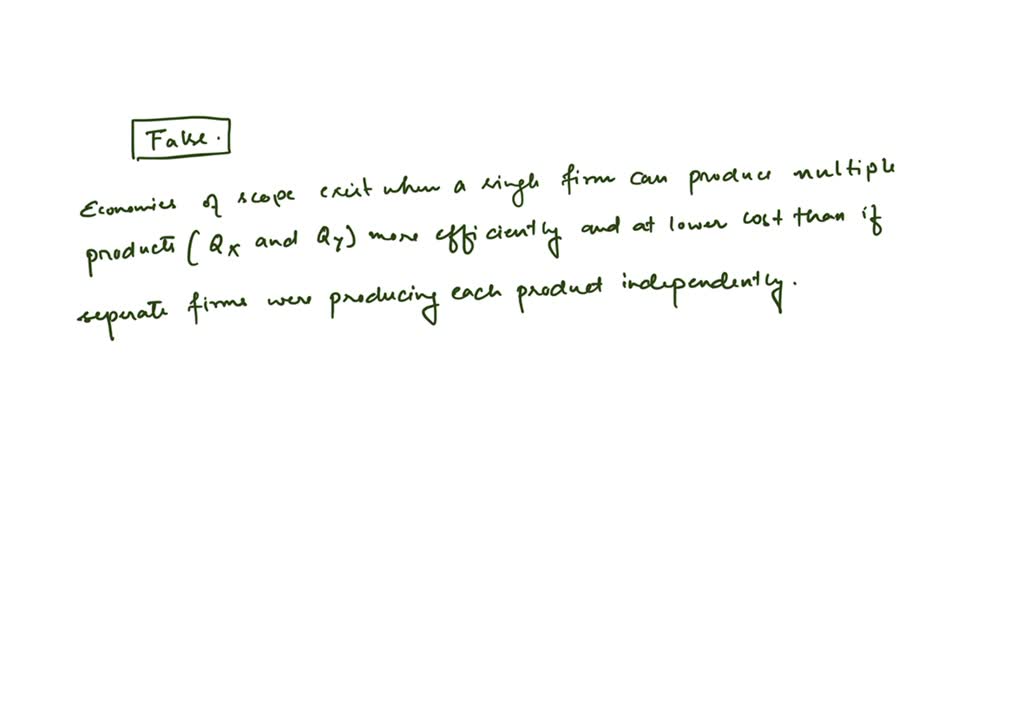 False.
Economies of scope exist when a single firm can produce multiple
products (Qx and Qy) more efficiently and at lower cost than if
seperate firms were producing each product independently.